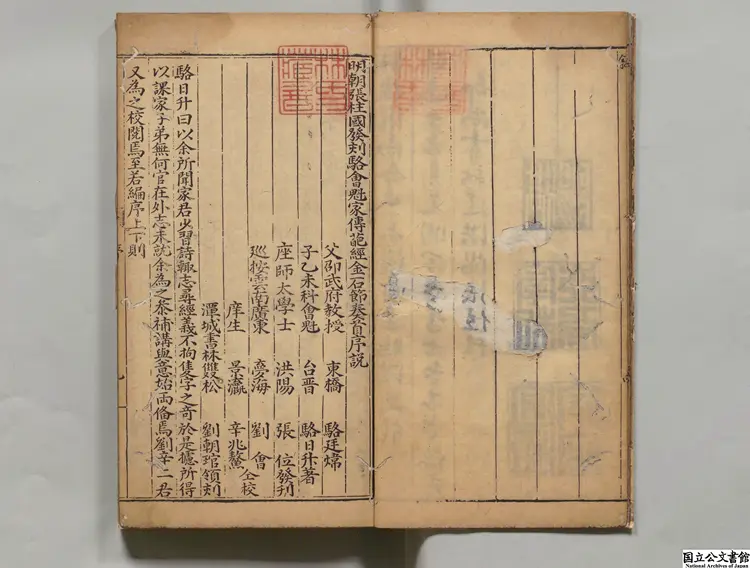 明朝張柱國發刻駱會魁家傳葩經金石節奏首序說
父邵武府教授 東橋 駱廷煒
子乙未科會魁 台晉 駱日升著
座師太學士 洪陽 張位發刊
巡按雲南廣東 夢海 劉會
庠生 景瀛 辛兆鰲 仝校
潭城書林雙松 劉朝琯領刻
駱日升曰以余所聞家君少習詩輙志尊經義不拘隻字之奇於是攄所得
以課家子弟無何官在外志未就余為之叅補講與意始兩俻焉劉辛二君
又為之校閱焉至若編序上下則
國立公文書館
National Archives of Japan